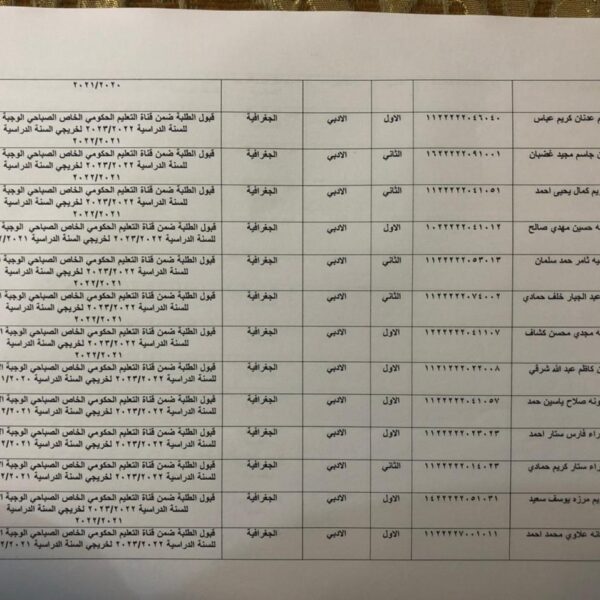 ٢٠٢١/٢٠٢٠
عدنان كريم عباس ١١٢٢٢٢٢٠٤٦٠٤٠ الاول الادبي الجغرافية قبول الطلبة ضمن قناة التعليم الحكومي الخاص الصباحي الوجبة
للسنة الدراسية ٢٠٢٣/٢٠٢٢ لخريجي السنة الدراسية
٢٠٢٢/٢٠٢١
جاسم مجيد غضبان ١٦٢٢٢٢٢٠٩١٠٠١ الثاني الادبي الجغرافية قبول الطلبة ضمن قناة التعليم الحكومي الخاص الصباحي الوجبة
للسنة الدراسية ٢٠٢٣/٢٠٢٢ لخريجي السنة الدراسية
٢٠٢٢/٢٠٢١
كمال يحيى احمد ١١٢٢٢٢٢٠٤١٠٥١ الثاني الادبي الجغرافية قبول الطلبة ضمن قناة التعليم الحكومي الخاص الصباحي الوجبة
للسنة الدراسية ٢٠٢٣/٢٠٢٢ لخريجي السنة الدراسية
٢٠٢٢/٢٠٢١
حسين مهدي صالح ١٠٢٢٢٢٢٠٤١٠١٢ الاول الادبي الجغرافية قبول الطلبة ضمن قناة التعليم الحكومي الخاص الصباحي الوجبة
للسنة الدراسية ٢٠٢٣/٢٠٢٢ لخريجي السنة الدراسية
ثامر حمد سلمان ١١٢٢٢٢٢٠٥٣٠١٣ الثاني الادبي الجغرافية قبول الطلبة ضمن قناة التعليم الحكومي الخاص الصباحي الوجبة
للسنة الدراسية ٢٠٢٣/٢٠٢٢ لخريجي السنة الدراسية
٢٠٢٢/٢٠٢١
عبد الجبار خلف حمادي ١٠٢٢٢٢٢٠٧٤٠٠٢ الثاني الادبي الجغرافية قبول الطلبة ضمن قناة التعليم الحكومي الخاص الصباحي الوجبة
للسنة الدراسية ٢٠٢٣/٢٠٢٢ لخريجي السنة الدراسية
٢٠٢٢/٢٠٢١
مجدي محسن كشاف ١٢٢٢٢٢٢٠٤١١٠٧ الاول الادبي الجغرافية قبول الطلبة ضمن قناة التعليم الحكومي الخاص الصباحي الوجبة
للسنة الدراسية ٢٠٢٣/٢٠٢٢ لخريجي السنة الدراسية
٢٠٢٢/٢٠٢١
كاظم عبد الله شرقي ١١٢١٢٢٢٠٢٢٠٠٨ الاول الادبي الجغرافية قبول الطلبة ضمن قناة التعليم الحكومي الخاص الصباحي الوجبة
للسنة الدراسية ٢٠٢٣/٢٠٢٢ لخريجي السنة الدراسية
صلاح ياسين حمد ١١٢٢٢٢٢٠٤١٠٥٧ الاول الادبي الجغرافية قبول الطلبة ضمن قناة التعليم الحكومي الخاص الصباحي الوجبة
للسنة الدراسية ٢٠٢٣/٢٠٢٢ لخريجي السنة الدراسية
فارس ستار احمد ١١٢٢٢٢٢٠٢٣٠٢٣ الاول الادبي الجغرافية قبول الطلبة ضمن قناة التعليم الحكومي الخاص الصباحي الوجبة
للسنة الدراسية ٢٠٢٣/٢٠٢٢ لخريجي السنة الدراسية
ستار كريم حمادي ١١٢٢٢٢٢٠١٤٠٢٣ الثاني الادبي الجغرافية قبول الطلبة ضمن قناة التعليم الحكومي الخاص الصباحي الوجبة
للسنة الدراسية ٢٠٢٣/٢٠٢٢ لخريجي السنة الدراسية
مرزه يوسف سعيد ١٤٢٢٢٢٢٠٥١٠٣١ الاول الادبي الجغرافية قبول الطلبة ضمن قناة التعليم الحكومي الخاص الصباحي الوجبة
للسنة الدراسية ٢٠٢٣/٢٠٢٢ لخريجي السنة الدراسية
٢٠٢٢/٢٠٢١
علاوي محمد احمد ١١٢٢٢٢٧٠٠١٠١١ الاول الادبي الجغرافية قبول الطلبة ضمن قناة التعليم الحكومي الخاص الصباحي الوجبة
للسنة الدراسية ٢٠٢٣/٢٠٢٢ لخريجي السنة الدراسية